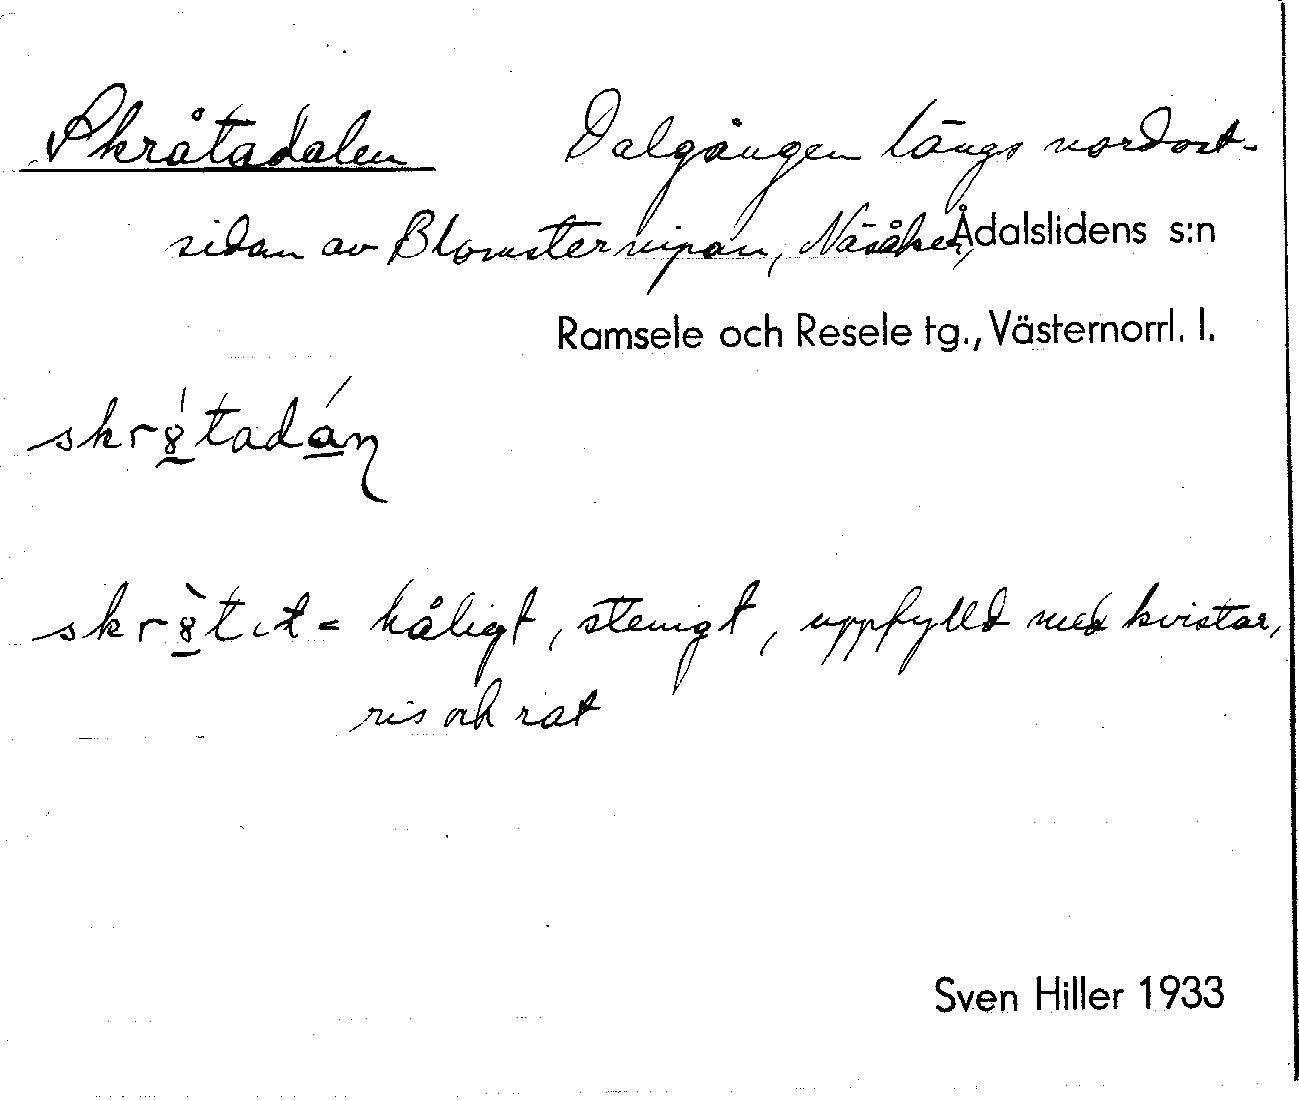 Skråtadalen Dalgången längs nordost-
sidan av Blomstervipan, Näsåker, Ådalslidens s:n
Ramsele och Resele tg., Västernorrl. l.
skr8́tadáɳ
skr8̀tit = håligt, stenigt, uppfylld med kvistar,
ris och rat
Sven Hiller 1933